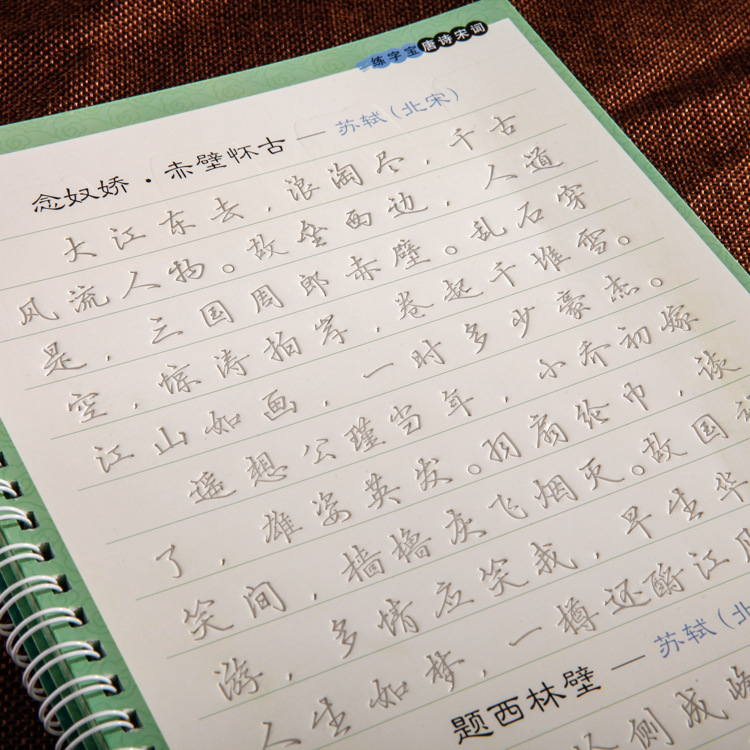 练字宝 唐诗宋词
念奴娇·赤壁怀古 — 苏轼(北宋)
大江东去,浪淘尽,千古
风流人物。故垒西边,人道
是,三国周郎赤壁。乱石穿
空,惊涛拍岸,卷起千堆雪。
江山如画,一时多少豪杰。
遥想公瑾当年,小乔初嫁
了,雄姿英发。羽扇纶巾,谈
笑间,樯橹灰飞烟灭。故国
游,多情应笑我,早生华
人生如梦,一樽还酹江月
题西林壁 — 苏轼(北
侧成峰